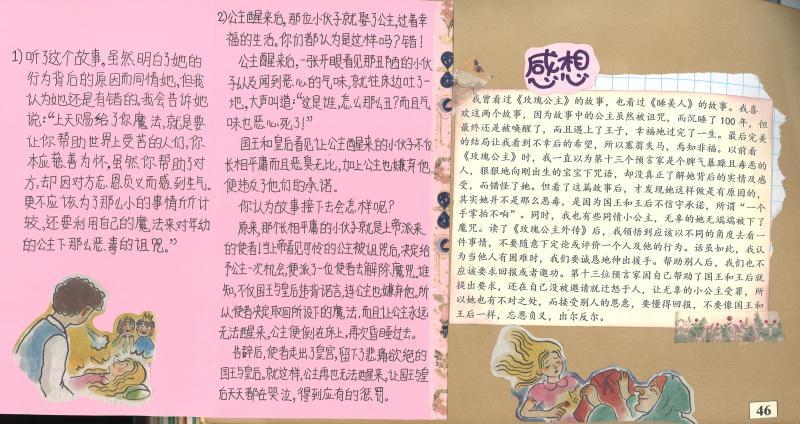 1)听了这个故事,虽然明白了她的
行为背后的原因而同情她,但我
认为她还是有错的。我会告诉她
说:“上天赐给了你魔法,就是要
让你帮助世界上受苦的人们,你
本应慈善为怀,虽然你帮助了对
方,却因对方忘恩负义而感到生气。
更不应该为了那么小的事情斤斤计
较,还要利用自己的魔法来对年幼
的公主下那么恶毒的诅咒。”
2)公主醒来后,那位小伙子就娶了公主,过着幸
福的生活。你们都认为是这样吗?错!
公主醒来后,一张开眼看见那丑陋的小伙
子以及闻到恶心的气味,就往床边吐了一
地,大声叫道:“这是谁,怎么那么丑?而且气
味也恶心死了!”
国王和皇后看见让公主醒来的小伙子不仅
长相平庸而且恶臭无比,加上公主也嫌弃他,
便违反了他们的承诺。
你认为故事接下去会怎样呢?
原来,那长相平庸的小伙子就是上帝派来
的使者!当上帝看见可怜的公主被诅咒后,决定给
予公主一次机会,便派了一位使者去解除魔咒。谁
知,不仅国王与皇后违背诺言,连公主也嫌弃他。所
以使者决定取回所设下的魔法,而且让公主永远
无法醒来,公主便倒在床上,再次昏睡过去。
告辞后,使者走出了皇宫,留下了悲痛欲绝的
国王与皇后。就这样,公主再也无法醒来,让国王与皇
后天天都在哭泣,得到应有的惩罚。
感想
我曾看过《玫瑰公主》的故事,也看过《睡美人》的故事。我喜
欢这两个故事,因为故事中的公主虽然被诅咒,而沉睡了 100 年,但
最终还是被唤醒了,而且遇上了王子,幸福地过完了一生。最后完美
的结局让我看到不幸后的希望,所以塞翁失马,焉知非福。以前看
《玫瑰公主》时,我一直以为第十三个预言家是个脾气暴躁且毒恶的
人,狠狠地向刚出生的宝宝下咒语,却没真正了解她背后的实情及感
受,而错怪了她。但看了这篇故事后,才发现她这样做是有原因的,
其实她并不是那么恶毒,是因为国王和王后不信守承诺,所谓“一个
手掌拍不响”。同时,我也有些同情小公主,无辜的她无端端被下了
魔咒。读了《玫瑰公主外传》后,我领悟到应该以不同的角度去看一
件事情,不要随意下定论或评价一个人及他的行为。话虽如此,我认
为当他人有困难时,我们要诚恳地伸出援手。帮助别人后,我们也不
应该要求回报或者邀功。第十三位预言家因自己帮助了国王和王后就
提出要求,还在自己没被邀请就迁怒于人,让无辜的小公主受罪,所
以她也有不对之处,而接受别人的恩惠,要懂得回报,不要像国王和
王后一样,忘恩负义,出尔反尔。
46